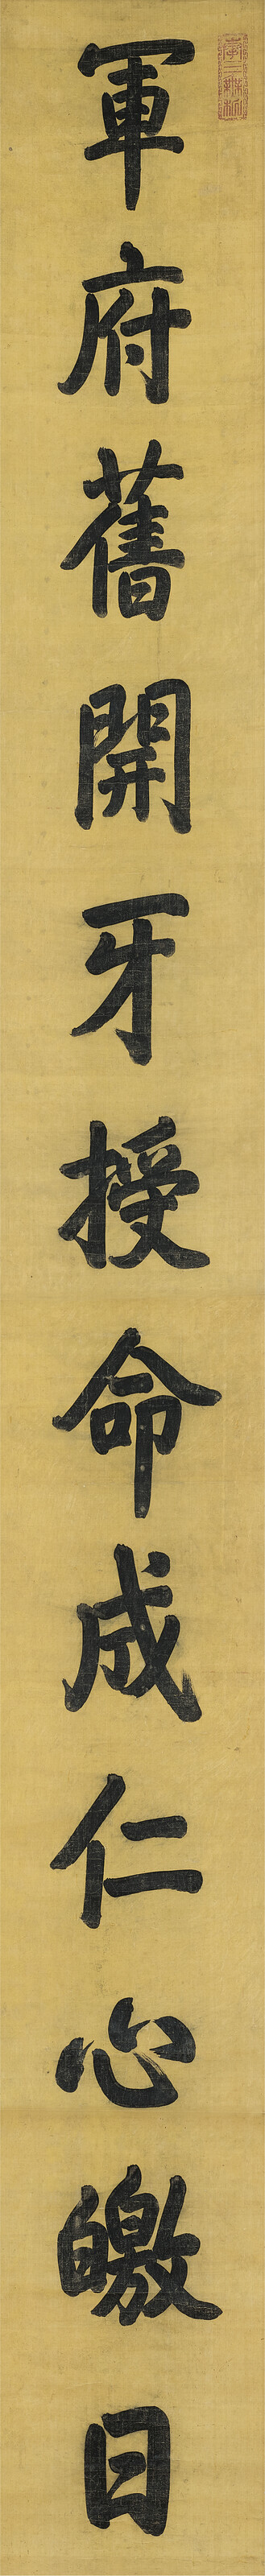 軍府舊開牙授命成仁心皦日